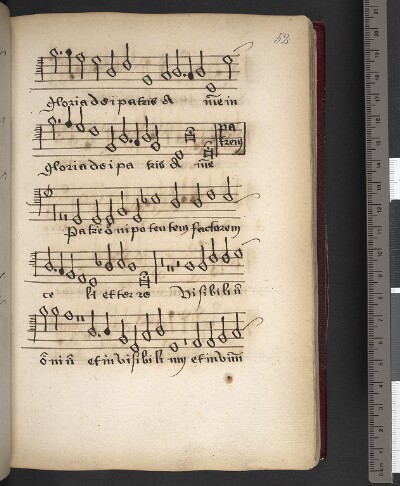 gloria dei patris A me in
gloria dei pa tris A me
pa
trem
Patrē ōnipotentem factorem
ce li et terre Visibiliū
ōniū et invisibili um et in unū